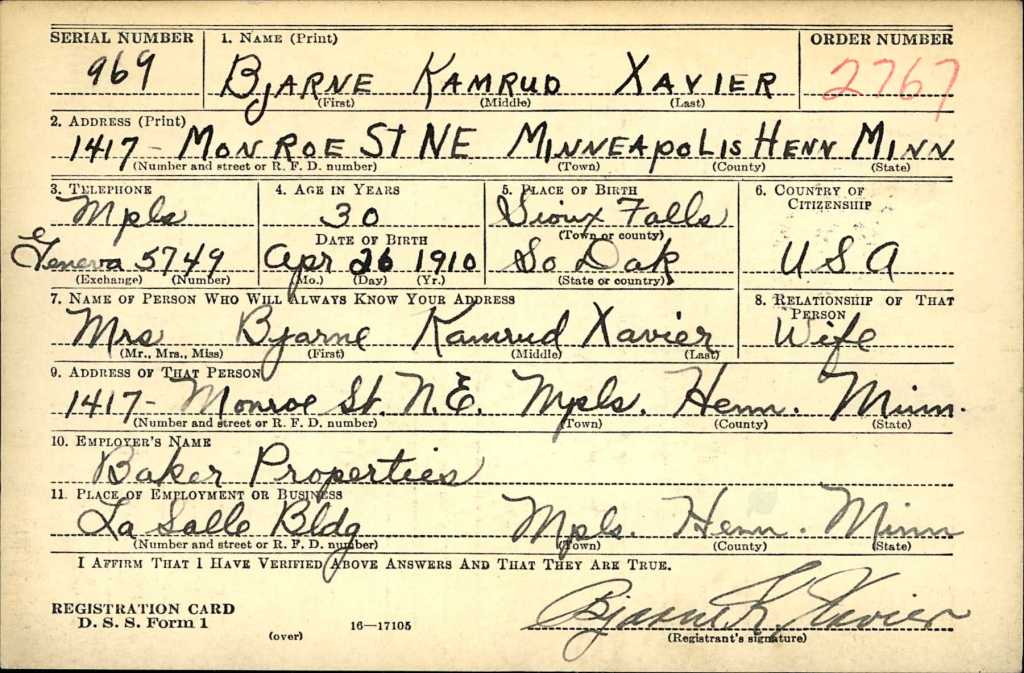 SERIAL NUMBER 1. NAME (Print) ORDER NUMBER
969 BJARNE KAMRUD XAVIER 2767
(First) (Middle) (Last)
2. ADDRESS (Print)
1417 - MONROE ST NE MINNEAPOLIS HENN MINN
(Number and street or R. F. D. number) (Town) (County) (State)
3. TELEPHONE 4. AGE IN YEARS 5. PLACE OF BIRTH 6. COUNTRY OF
CITIZENSHIP
Mpls 30 Sioux Falls
DATE OF BIRTH (Town or county)
Geneva 5749 Apr 26 1910 So Dak USA
(Exchange) (Number) (Mo.) (Day) (Yr.) (State or country)
7. NAME OF PERSON WHO WILL ALWAYS KNOW YOUR ADDRESS 8. RELATIONSHIP OF THAT
PERSON
Mrs Bjarne Kamrud Xavier Wife
(Mr., Mrs., Miss) (First) (Middle) (Last)
9. ADDRESS OF THAT PERSON
1417 - Monroe St. N.E. Mpls. Henn. Minn.
(Number and street or R. F. D. number) (Town) (County) (State)
10. EMPLOYER'S NAME
Baker Properties
11. PLACE OF EMPLOYMENT OR BUSINESS
La Salle Bldg Mpls. Henn. Minn
(Number and street or R. F. D. number) (Town) (County) (State)
I AFFIRM THAT I HAVE VERIFIED ABOVE ANSWERS AND THAT THEY ARE TRUE.
REGISTRATION CARD
D. S. S. Form 1
(over) 16—17105
Bjarne K. Xavier
(Registrant's signature)